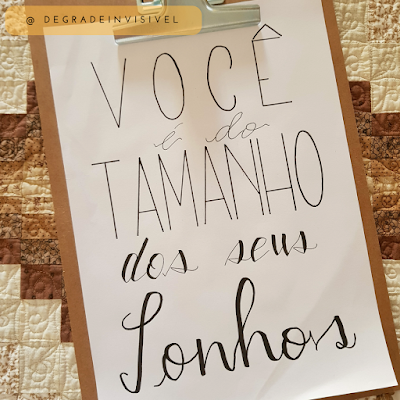 @ DEGRADEINVISIVEL
VOCÊ
é do
TAMANHO
dos seus
Sonhos